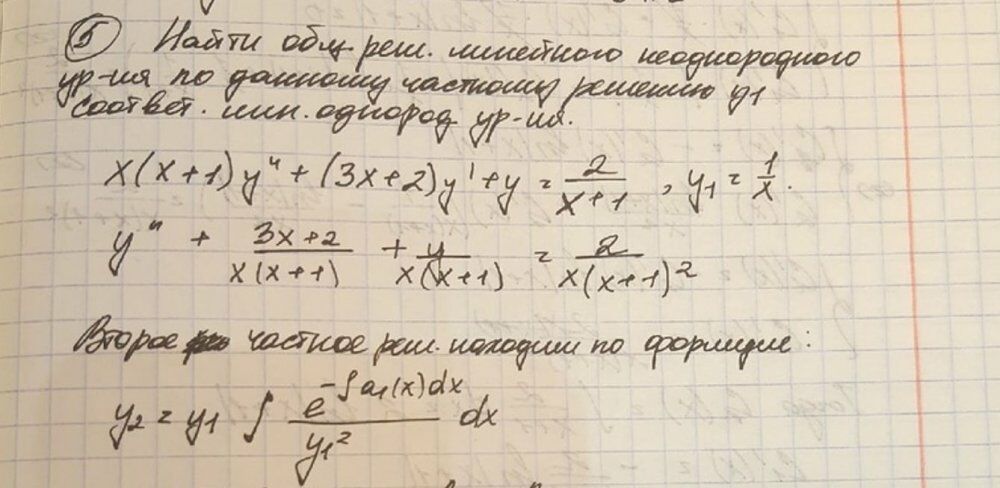 ⑤ Найти общ. реш. линейного неоднородного
ур-ия по данному частному решению y₁
соответ. лин. однород ур-ия.
x(x+1)y" + (3x+2)y' + y = 2/(x+1), y₁ = 1/x.
y" + (3x+2)/(x(x+1)) + y/(x(x+1)) = 2/(x(x+1)²)
Второе частное реш. находим по формуле:
y₂ = y₁ ∫ e^(-∫a₁(x)dx)/y₁² dx